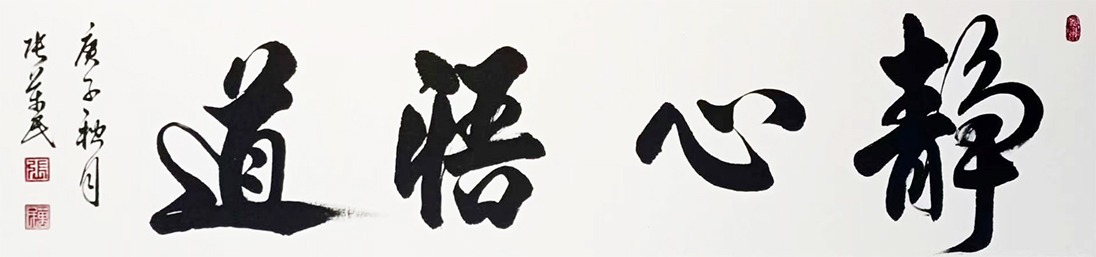 静心悟道
庚子秋月
张万民
張